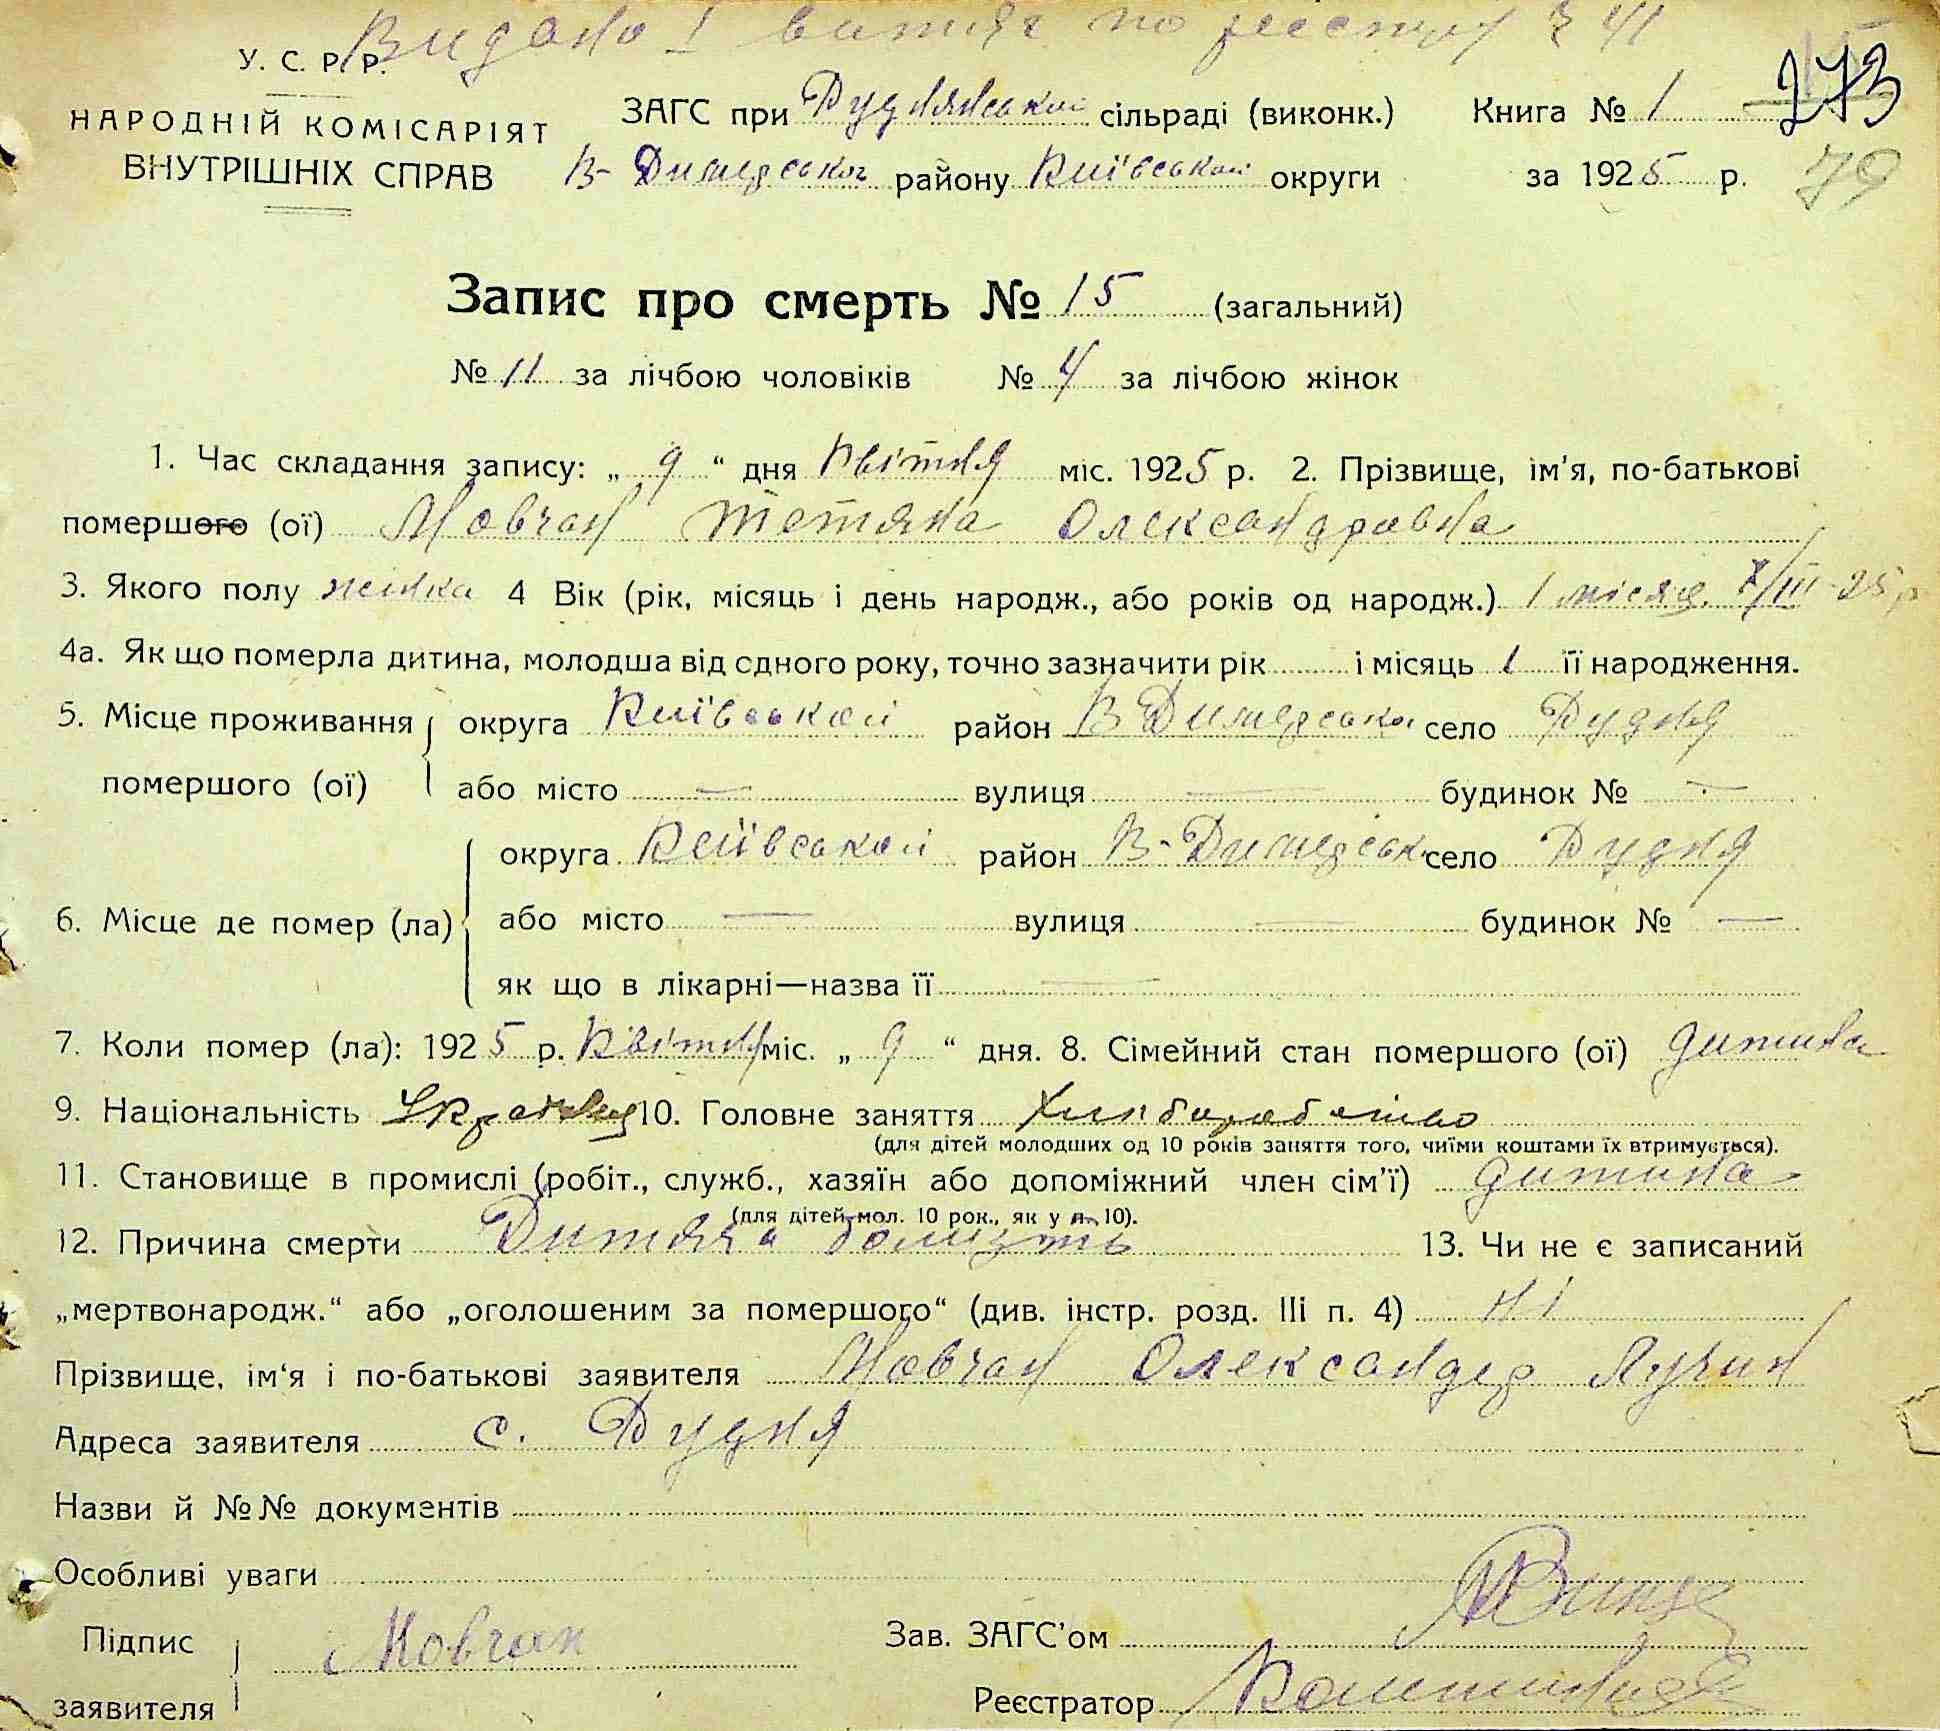 Видано І витяг по реєстру з 41
У. С. Р. Р.
НАРОДНІЙ КОМІСАРІЯТ
ВНУТРІШНІХ СПРАВ
ЗАГС при Руднянській сільраді (виконк.) Книга № 1 273
В-Димерської району Київської округи за 1925 р. 79
Запис про смерть № 15 (загальний)
№ 11 за лічбою чоловіків № 4 за лічбою жінок
1. Час складання запису: „ 9 “ дня Квітня міс. 1925 р. 2. Прізвище, ім'я, по-батькові
помершого (ої) Мовчан Тетяна Олександравна
3. Якого полу жінка 4 Вік (рік, місяць і день народж., або років од народж.) 1 місяц. /III-25 р
4а. Як що померла дитина, молодша від одного року, точно зазначити рік і місяць 1 її народження.
5. Місце проживання округа Київської район В Димерської село Рудня
помершого (ої) або місто — вулиця — будинок № —
округа Київської район В-Димерськ село Рудня
6. Місце де помер (ла) або місто — вулиця — будинок № —
як що в лікарні—назва її —
7. Коли помер (ла): 1925 р. Квітня міс. „ 9 “ дня. 8. Сімейний стан помершого (ої) дитина
9. Національність 10. Головне заняття Хліборобство
(для дітей молодших од 10 років заняття того, чиїми коштами їх втримується).
11. Становище в промислі (робіт., служб., хазяїн або допоміжний член сім'ї) дитина
(для дітей мол. 10 рок., як у п. 10).
12. Причина смерти Дитяча болизть 13. Чи не є записаний
„мертвонародж.“ або „оголошеним за помершого“ (див. інстр. розд. III п. 4) Ні
Прізвище, ім'я і по-батькові заявителя Мовчан Олександер Лукин
Адреса заявителя с. Рудня
Назви й №№ документів
Особливі уваги
Підпис
заявителя Мовчан
Зав. ЗАГС'ом
Реєстратор